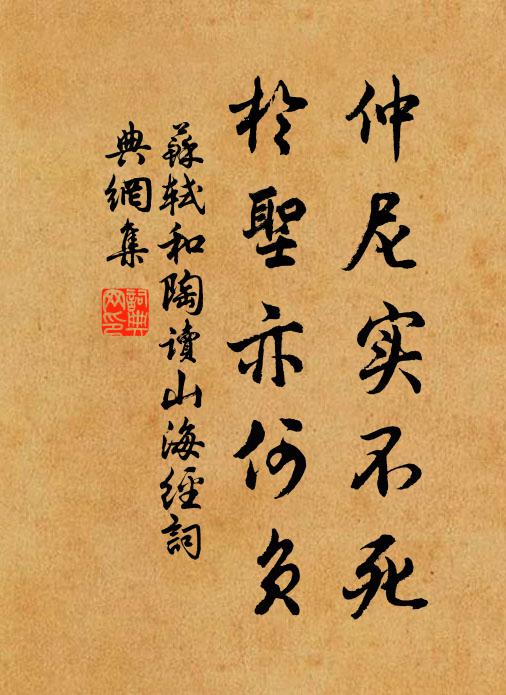 仲尼实不死
於聖亦何负
蘇軾和陶讀山海經詞
典網集
詞典
网印